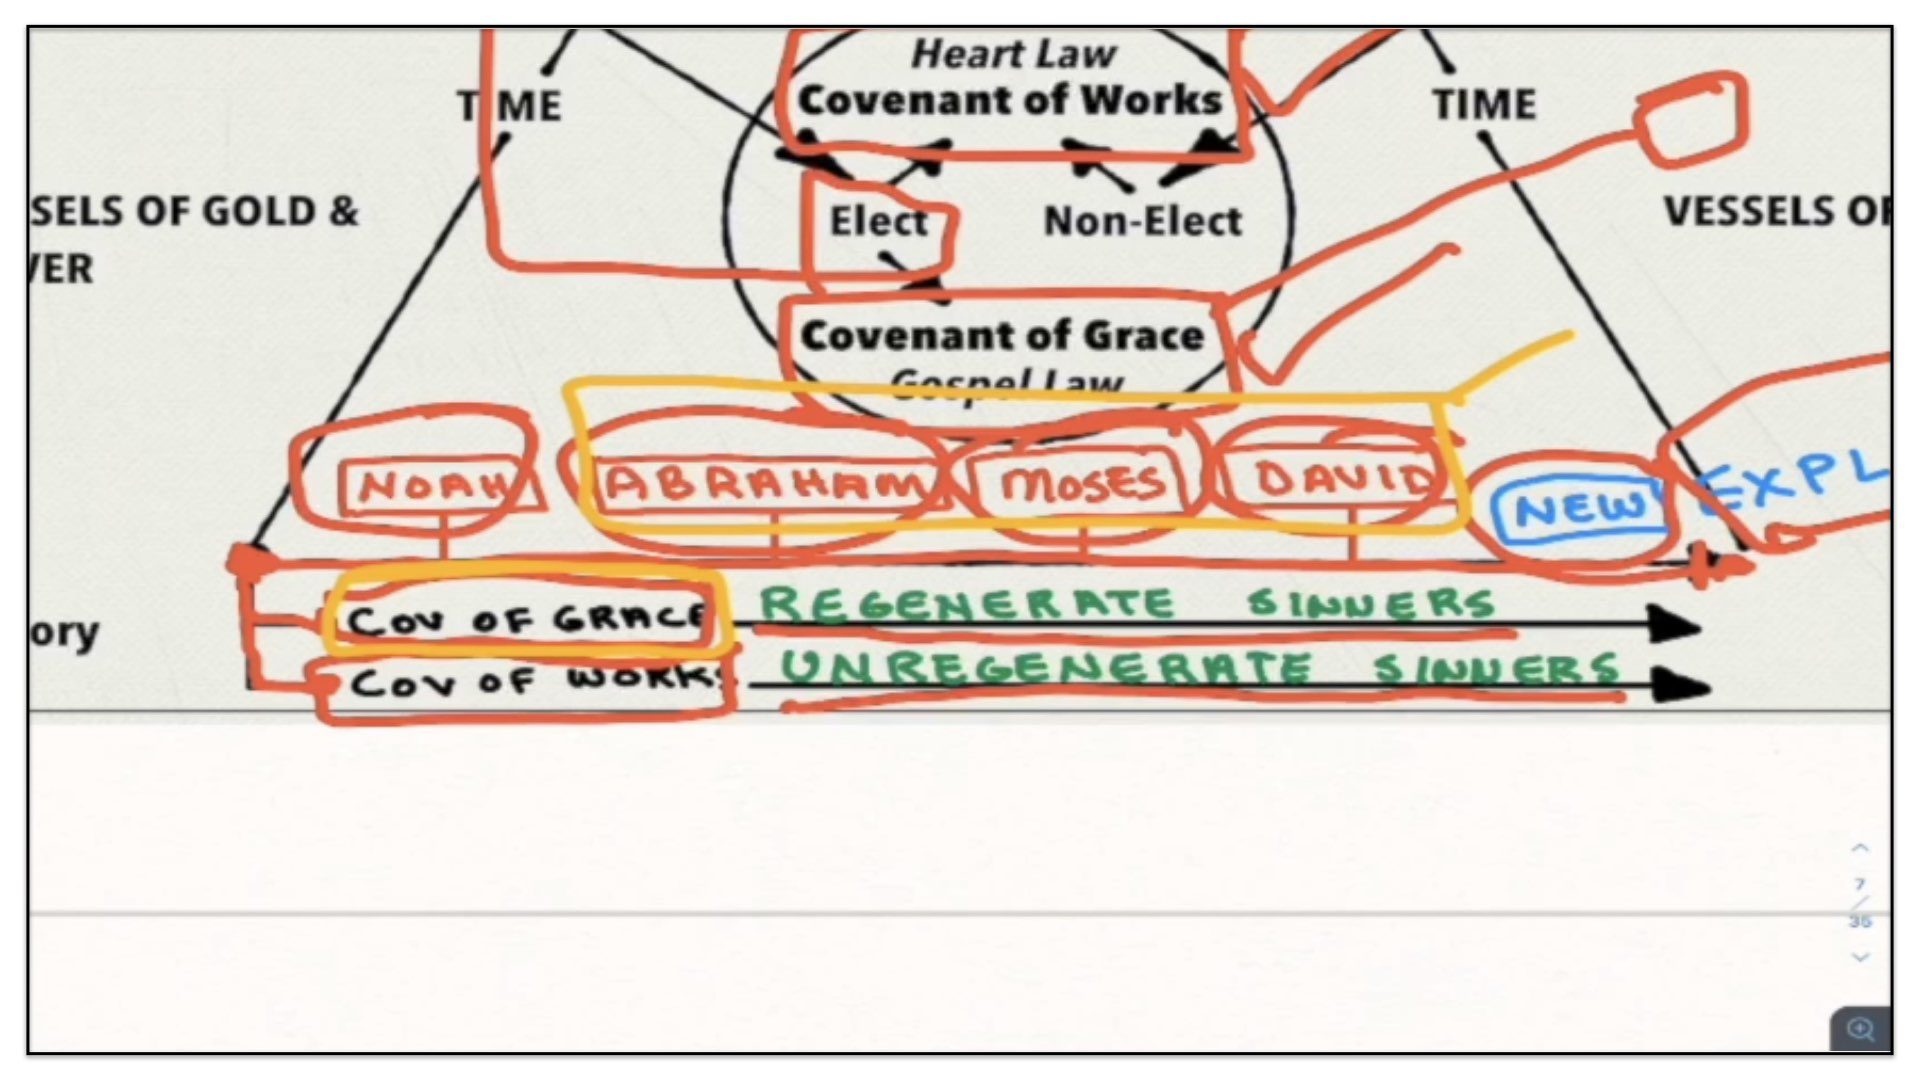 Heart Law
TIME
Covenant of Works
TIME
SELS OF GOLD &
Elect
Non-Elect
VESSELS OF
VER
Covenant of Grace
Gospel Law
NOAH
ABRAHAM
MOSES
DAVID
NEW
EXPL
ory
COV OF GRACE
REGENERATE SINNERS
COV OF WORKS
UNREGENERATE SINNERS
7
/
35